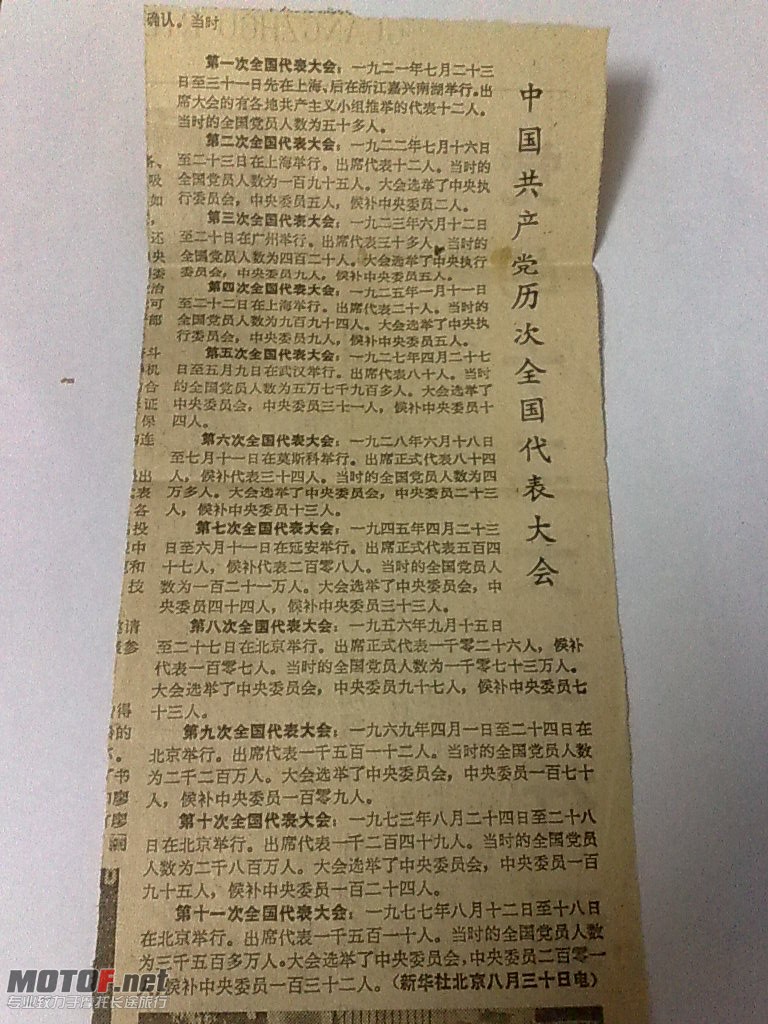 确认。当时
中国共产党历次全国代表大会
第一次全国代表大会：一九二一年七月二十三
日至三十一日先在上海、后在浙江嘉兴南湖举行。出
席大会的有各地共产主义小组推举的代表十二人。
当时的全国党员人数为五十多人。
第二次全国代表大会：一九二二年七月十六日
至二十三日在上海举行。出席代表十二人。当时的
全国党员人数为一百九十五人。大会选举了中央执
行委员会，中央委员五人，候补中央委员二人。
第三次全国代表大会：一九二三年六月十二日
至二十日在广州举行。出席代表三十多人。当时的
全国党员人数为四百二十人。大会选举了中央执行
委员会，中央委员九人，候补中央委员五人。
第四次全国代表大会：一九二五年一月十一日
至二十二日在上海举行。出席代表二十人。当时的
全国党员人数为九百九十四人。大会选举了中央执
行委员会，中央委员九人，候补中央委员五人。
第五次全国代表大会：一九二七年四月二十七
日至五月九日在武汉举行。出席代表八十人。当时
的全国党员人数为五万七千九百多人。大会选举了
中央委员会，中央委员三七一人，候补中央委员十
四人。
第六次全国代表大会：一九二八年六月十八日
至七月十一日在莫斯科举行。出席正式代表八十四
人，候补代表三十四人。当时的全国党员人数为四
万多人。大会选举了中央委员会，中央委员二十三
人，候补中央委员十三人。
第七次全国代表大会：一九四五年四月二十三
日至六月十一日在延安举行。出席正式代表五百四
十七人，候补代表二百零八人。当时的全国党员人
数为一百二十一万人。大会选举了中央委员会，中
央委员四十四人，候补中央委员三十三人。
第八次全国代表大会：一九五六年九月十五日
至二十七日在北京举行。出席正式代表一千零二十六人，候补
代表一百零七人。当时的全国党员人数为一千零七十三万人。
大会选举了中央委员会，中央委员九十七人，候补中央委员七
十三人。
第九次全国代表大会：一九六九年四月一日至二十四日在
北京举行。出席代表一千五百一十二人。当时的全国党员人数
为二千二百万人。大会选举了中央委员会，中央委员一百七十
人，候补中央委员一百零九人。
第十次全国代表大会：一九七三年八月二十四日至二十八
日在北京举行。出席代表一千二百四十九人。当时的全国党员
人数为二千八百万人。大会选举了中央委员会，中央委员一百
九十五人，候补中央委员一百二十四人。
第十一次全国代表大会：一九七七年八月十二日至十八日
在北京举行。出席代表一千五百一十人。当时的全国党员人数
为三千五百多万人。大会选举了中央委员会，中央委员二百零一
候补中央委员一百三十二人。（新华社北京八月三十日电）
MOTOF.net
专业致力于摩托长途旅行